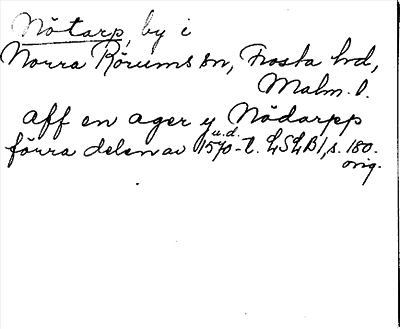 Nötarp, by i
Norra Rörums sn, Frosta hd,
Malm. l.
aff en ager y Nödarpp
u.d.
förra delen av 1570-t. LSLB1, s. 180.
orig.